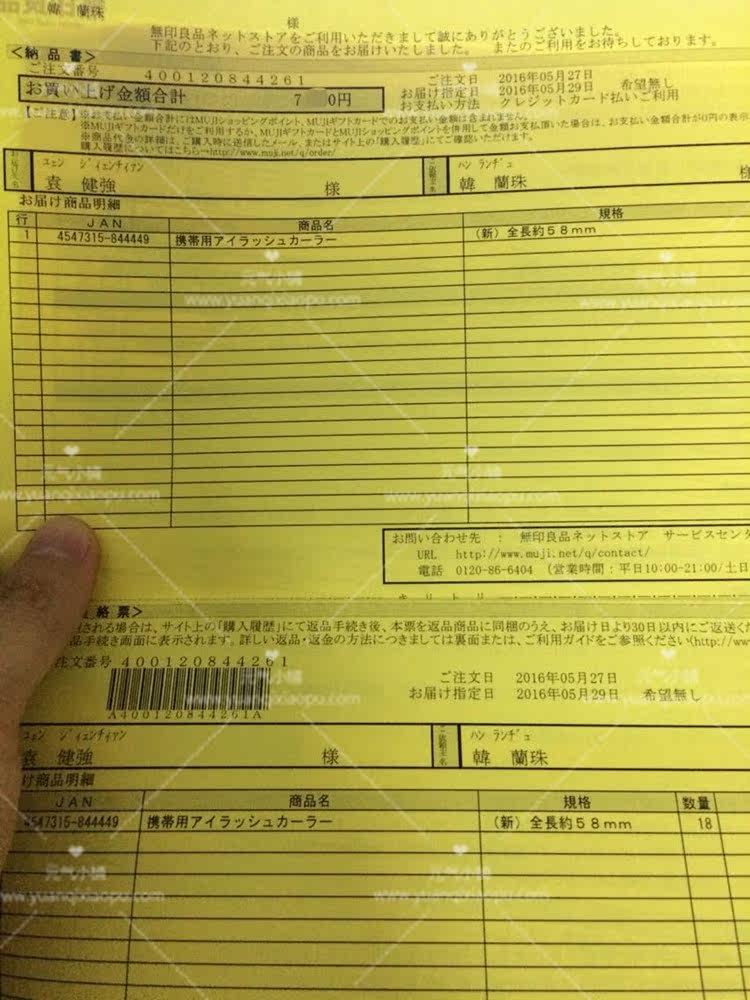 韓 蘭珠
様
無印良品ネットストアをご利用いただきまして誠にありがとうございました。
下記のとおり、ご注文の商品をお届けいたしました。 またのご利用をお待ちしております。
<納品書>
ご注文番号 400120844261
ご注文日 2016年05月27日
お届け指定日 2016年05月29日 希望無し
お支払い方法 クレジットカード払いご利用
お買い上げ金額合計 7 0円
【ご注意】※お支払い金額合計にはMUJIショッピングポイント、MUJIギフトカードでのお支払い金額は含まれません。
※MUJIギフトカードだけをご利用するか、MUJIギフトカードとMUJIショッピングポイントを併用して全額お支払頂いた場合は、お支払い金額合計が0円の表示
※商品代金の詳細は、ご購入時に送信したメール、またはサイト上の「購入履歴」にてご確認いただけます。
購入履歴についてはこちら→http://www.muji.net/q/order/
ユェン ジィェンチィアン
袁 健強 様
ハン ランヂュ
韓 蘭珠 様
お届け商品明細
行 JAN 商品名 規格
1 4547315-844449 携帯用アイラッシュカーラー (新) 全長約58mm
元气小铺
www.yuanqixiaopu.com
元气小铺
www.yuanqixiaopu.com
元气小铺
www.yuanqixiaopu.com
元气小铺
www.yuanqixiaopu.com
お問い合わせ先 : 無印良品ネットストア サービスセン
URL http://www.muji.net/q/contact/
電話 0120-86-6404 (営業時間:平日10:00-21:00/土日
キリトリ
絡票>
される場合は、サイト上の「購入履歴」にて返品手続き後、本票を返品商品に同梱のうえ、お届け日より30日以内にご返送く
品手続き画面に表示されます。詳しい返品・返金の方法につきましては裏面または、ご利用ガイドをご参照ください(http://ww
注文番号 400120844261
A400120844261A
ご注文日 2016年05月27日
お届け指定日 2016年05月29日 希望無し
元气小铺
www.yuanqixiaopu.com
元气小铺
ユェン ジィェンチィアン
袁 健強 様
ご依頼主名
ハン ランヂュ
韓 蘭珠
け商品明細
JAN 商品名 規格 数量
4547315-844449 携帯用アイラッシュカーラー (新) 全長約58mm 18
元气小铺
www.yuanqixiaopu.com
元气小铺
www.yuanqixiaopu.com